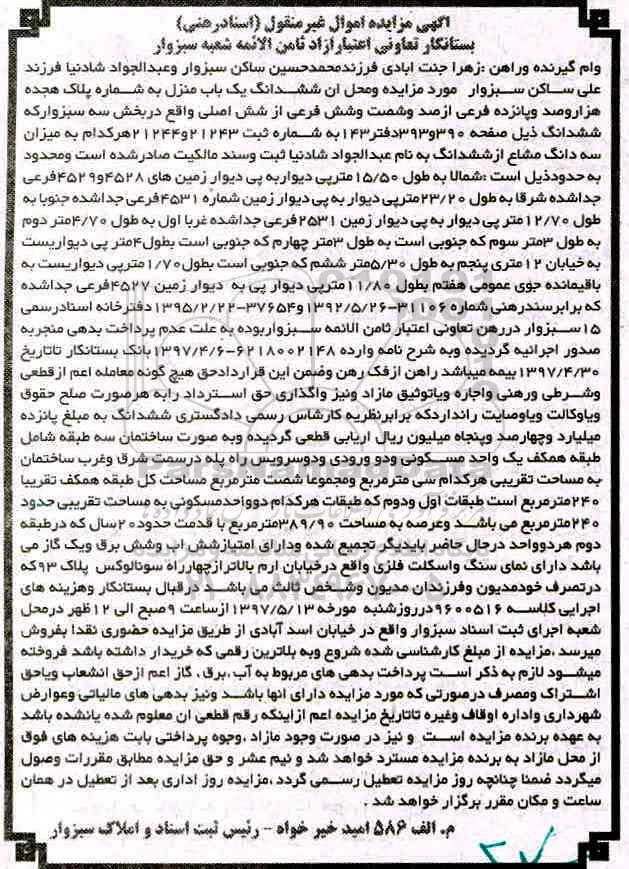 آگهی مزایده اموال غیرمنقول (اسنادرهنی)
بستانکار تعاونی اعتبارازاد ثامن الائمه شعبه سبزوار
وام گیرنده وراهن :زهرا جنت ابادی فرزندمحمدحسین ساکن سبزوار وعبدالجواد شادنیا فرزند
علی ساکن سبزوار مورد مزایده ومحل ان ششدانگ یک باب منزل به شماره پلاک هجده
هزاروصد وپانزده فرعی ازصد وشصت وشش فرعی از شش اصلی واقع دربخش سه سبزوارکه
ششدانگ ذیل صفحه ۳۹۰و۳۹۳دفتر۱۴۳به شماره ثبت ۲۱۲۴۳و۲۱۲۴۴هرکدام به میزان
سه دانگ مشاع ازششدانگ به نام عبدالجواد شادنیا ثبت وسند مالکیت صادرشده است ومحدود
به حدودذیل است :شمالا به طول ۱۵/۵۰مترپی دیواربه پی دیوار زمین های ۴۵۲۸و۴۵۲۹فرعی
جداشده شرقا به طول ۲۳/۲۰مترپی دیوار به پی دیوار زمین شماره ۴۵۳۱فرعی جداشده جنوبا به
طول ۱۲/۷۰متر پی دیوار به پی دیوار زمین ۲۵۳۱فرعی جداشده غربا اول به طول ۴/۷۰متر دوم
به طول ۳متر سوم که جنوبی است به طول ۳متر چهارم که جنوبی است بطول۴متر پی دیواریست
به خیابان ۱۲متری پنجم به طول ۵/۳۰متر ششم که جنوبی است بطول۱/۷۰مترپی دیواریست به
باقیمانده جوی عمومی هفتم بطول ۱۱/۸۰مترپی دیوار پی به دیوار زمین ۴۵۲۷فرعی جداشده
که برابرسندرهنی شماره۳۱۰۶۰-۱۳۹۲/۵/۲۶و۳۷۶۵۴-۱۳۹۵/۲/۲۲دفترخانه اسنادرسمی
۱۵سبزوار دررهن تعاونی اعتبار ثامن الائمه سبزواربوده به علت عدم پرداخت بدهی منجربه
صدور اجرائیه گردیده وبه شرح نامه وارده ۶۲۱۸۰۰۲۱۴۸-۱۳۹۷/۴/۶بانک بستانکار تاتاریخ
۱۳۹۷/۴/۳۰بیمه میباشد راهن ازفک رهن وضمن این قراردادحق هیچ گونه معامله اعم ازقطعی
وشرطی ورهنی واجاره ویاتوثیق مازاد ونیز واگذاری حق استرداد رابه هرصورت صلح حقوق
ویاوکالت ویاوصایت رانداردکه برابرنظریه کارشناس رسمی دادگستری ششدانگ به مبلغ پانزده
میلیارد وچهارصد وپنجاه میلیون ریال اریابی قطعی گردیده وبه صورت ساختمان سه طبقه شامل
طبقه همکف یک واحد مسکونی ودو ورودی ودوسرویس راه پله درسمت شرق وغرب ساختمان
به مساحت تقریبی هرکدام سی مترمربع ومجموعا شصت مترمربع مساحت کل طبقه همکف تقریبا
۲۴۰مترمربع است طبقات اول ودوم که طبقات هرکدام دوواحدمسکونی به مساحت تقریبی حدود
۲۴۰مترمربع می باشد وعرصه به مساحت ۳۸۹/۹۰مترمربع با قدمت حدود۲۰سال که درطبقه
دوم هردوواحد درحال حاضر بایدیگر تجمیع شده ودارای امتیازشش اب وشش برق ویک گاز می
باشد دارای نمای سنگ واسکلت فلزی واقع درخیابان ارم بالاترازچهارراه سونالوکس پلاک ۹۳که
درتصرف خودمدیون وفرزندان مدیون وشخص ثالث می باشد درقبال بستانکار وهزینه های
اجرایی کلاسه ۹۶۰۰۵۱۶درروزشنبه مورخه ۱۳۹۷/۵/۱۳ازساعت ۹صبح الی ۱۲ظهر درمحل
شعبه اجرای ثبت اسناد سبزوار واقع در خیابان اسد آبادی از طریق مزایده حضوری نقدا بفروش
میرسد ،مزایده از مبلغ کارشناسی شده شروع وبه بلاترین رقمی که خریدار داشته باشد فروخته
میشود لازم به ذکر است پرداخت بدهی های مربوط به آب ،برق ، گاز اعم ازحق انشعاب ویاحق
اشتراک ومصرف درصورتی که مورد مزایده دارای انها باشد ونیز بدهی های مالیاتی وعوارض
شهرداری واداره اوقاف وغیره تاتاریخ مزایده اعم ازاینکه رقم قطعی ان معلوم شده یانشده باشد
به عهده برنده مزایده است و نیز در صورت وجود مازاد ،وجوه پرداختی بابت هزینه های فوق
از محل مازاد به برنده مزایده مسترد خواهد شد و نیم عشر و حق مزایده مطابق مقررات وصول
میگردد ضمنا چنانچه روز مزایده تعطیل رسمی گردد ،مزایده روز اداری بعد از تعطیل در همان
ساعت و مکان مقرر برگزار خواهد شد .
م. الف ۵۸۶ امید خیر خواه - رئیس ثبت اسناد و املاک سبزوار